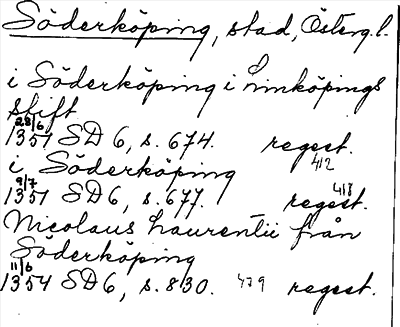 Söderköping, stad, Österg.l.
i Söderköping i Linköpings
stift
28/6
1351 SD 6, s. 674. regest.
412
i Söderköping
9/7
1351 SD 6, s. 677. regest.
418
Nicolaus Laurentii från
Söderköping
11/6
1354 SD 6, s. 830. 479 regest.